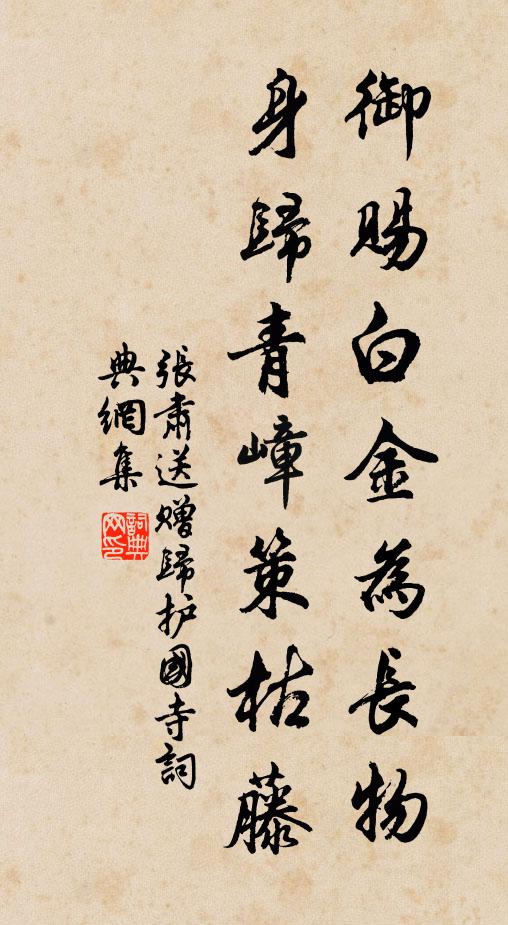 御賜白金為長物
身歸青嶂策枯藤
張肅送赠歸护國寺詞
典網集
詞典网印